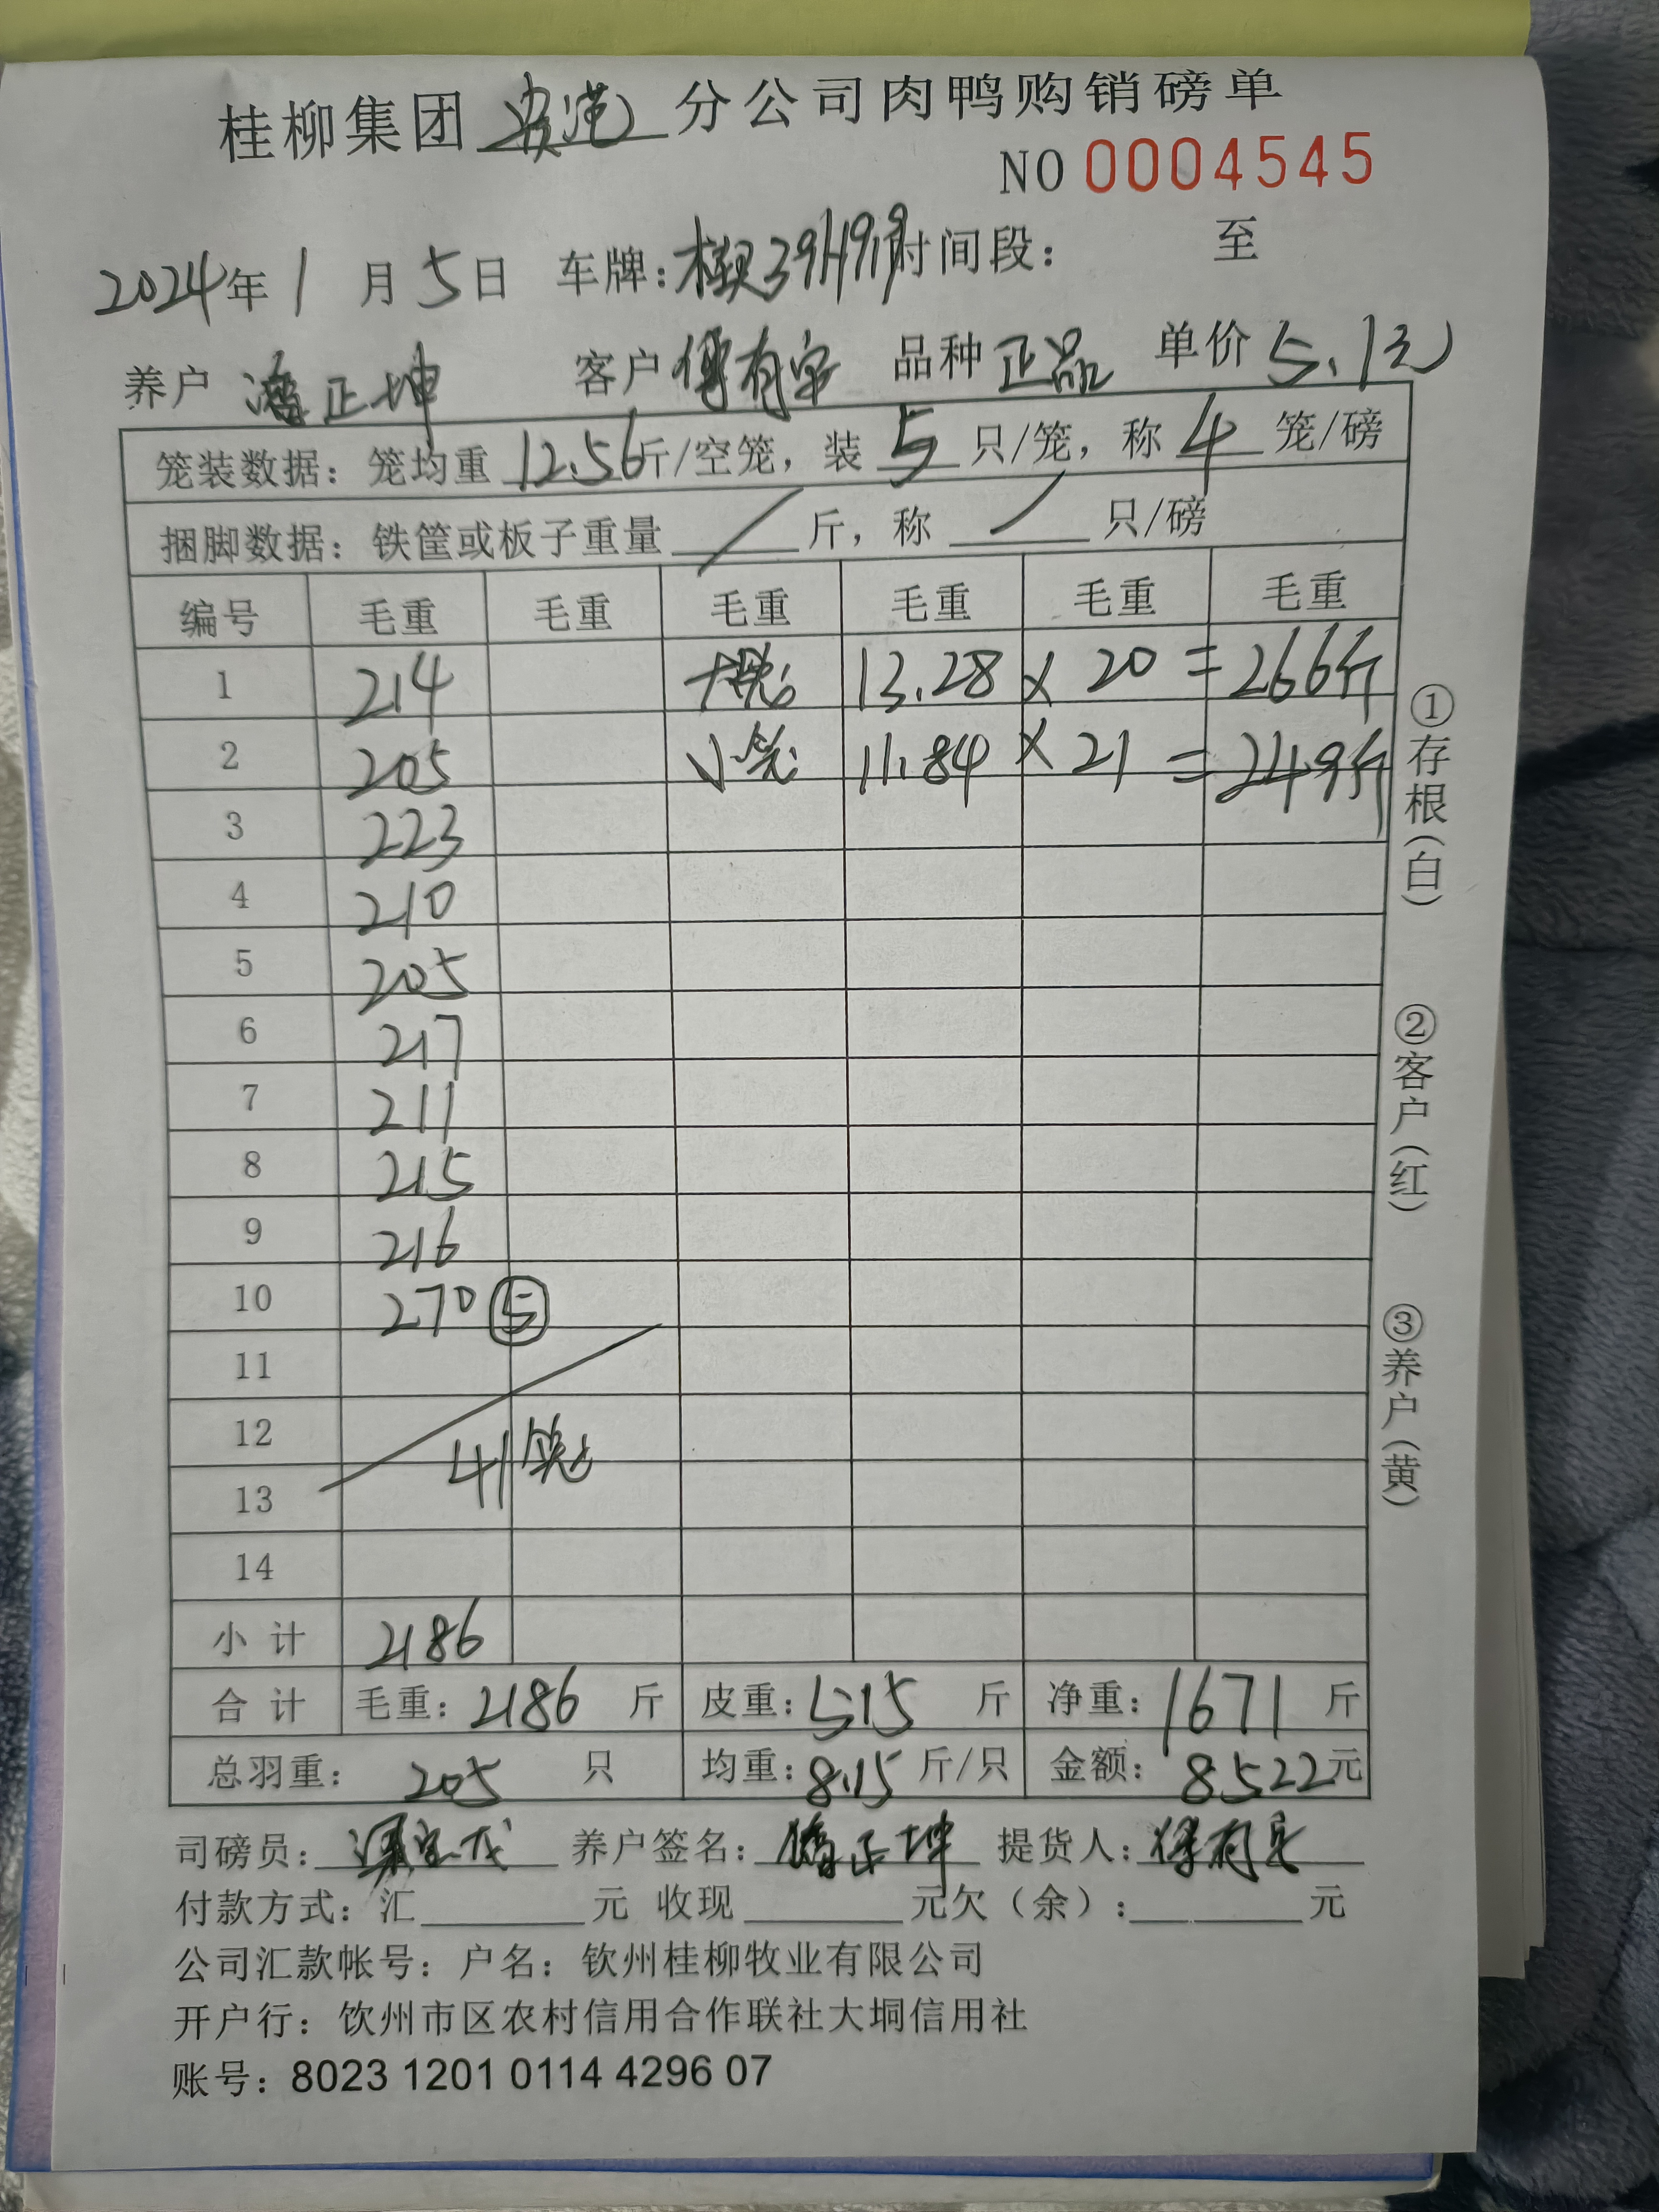 桂柳集团 贵港 分公司肉鸭购销磅单
NO 0004545
2024年 1 月 5日 车牌: 时间段: 至
养户 潘正坤 客户 品种 正品 单价 5.1元
笼装数据: 笼均重 12.56斤/空笼, 装 5 只/笼, 称 4 笼/磅
捆脚数据: 铁筐或板子重量 / 斤, 称 / 只/磅
编号 毛重 毛重 毛重 毛重 毛重 毛重
1 214 大笼 13.28 × 20 = 266斤
2 205 小笼 11.84 × 21 = 249斤
3 223
4 210
5 205
6 217
7 211
8 215
9 216
10 270 ⑤
11
12
41笼
13
14
小 计 2186
合 计 毛重: 2186 斤 皮重: 515 斤 净重: 1671 斤
总羽重: 205 只 均重: 8.15 斤/只 金额: 8522元
司磅员: 养户签名: 潘正坤 提货人:
付款方式: 汇 元 收现 元欠(余): 元
公司汇款帐号: 户名: 钦州桂柳牧业有限公司
开户行: 饮州市区农村信用合作联社大垌信用社
账号: 8023 1201 0114 4296 07
①存根(白)
②客户(红)
③养户(黄)